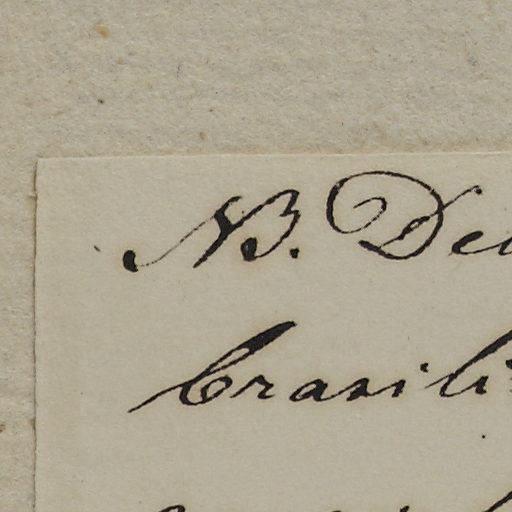 NB. De
brasili